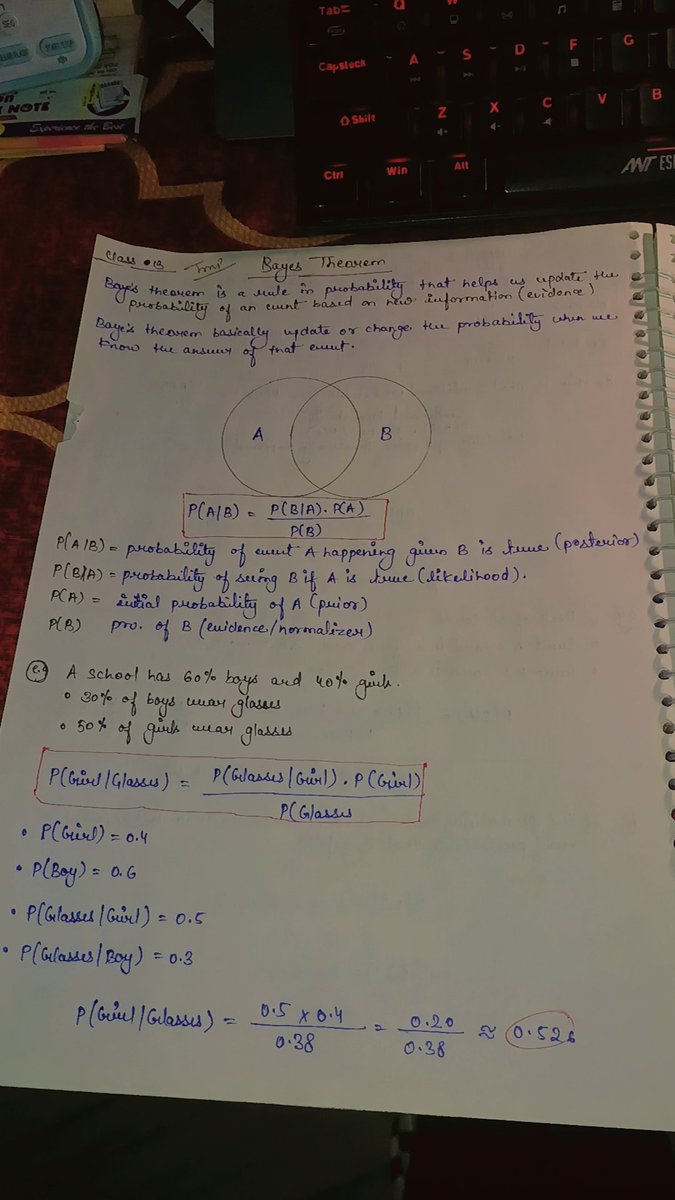 SEC
START/STOP
on
K NOTE
Experience the Best
Tab
Q
W
Capslock
A
S
D
F
G
Shift
Z
X
C
V
B
Ctrl
Win
Alt
ANT ES
Class 13 Imp Bayes Theorem
Baye's theorem is a rule in probability that helps us update the
probability of an event based on new information (evidence)
Baye's theorem basically update or change the probability when we
know the answer of that event.
A B
P(A/B) = P(B/A). P(A)
P(B)
P(A/B) = probability of event A happening given B is true (posterior)
P(B/A) = probability of seeing B if A is true (likelihood).
P(A) = initial probability of A (prior)
P(B) pro. of B (evidence/normalizer)
e.g A school has 60% boys and 40% girls.
• 30% of boys wear glasses
• 50% of girls wear glasses
P(Girl/Glasses) = P(Glasses/Girl). P(Girl)
P(Glasses
• P(Girl) = 0.4
• P(Boy) = 0.6
• P(Glasses/Girl) = 0.5
• P(Glasses/Boy) = 0.3
P(Girl/Glasses) = 0.5 x 0.4 = 0.20 ≈ 0.526
0.38 0.38